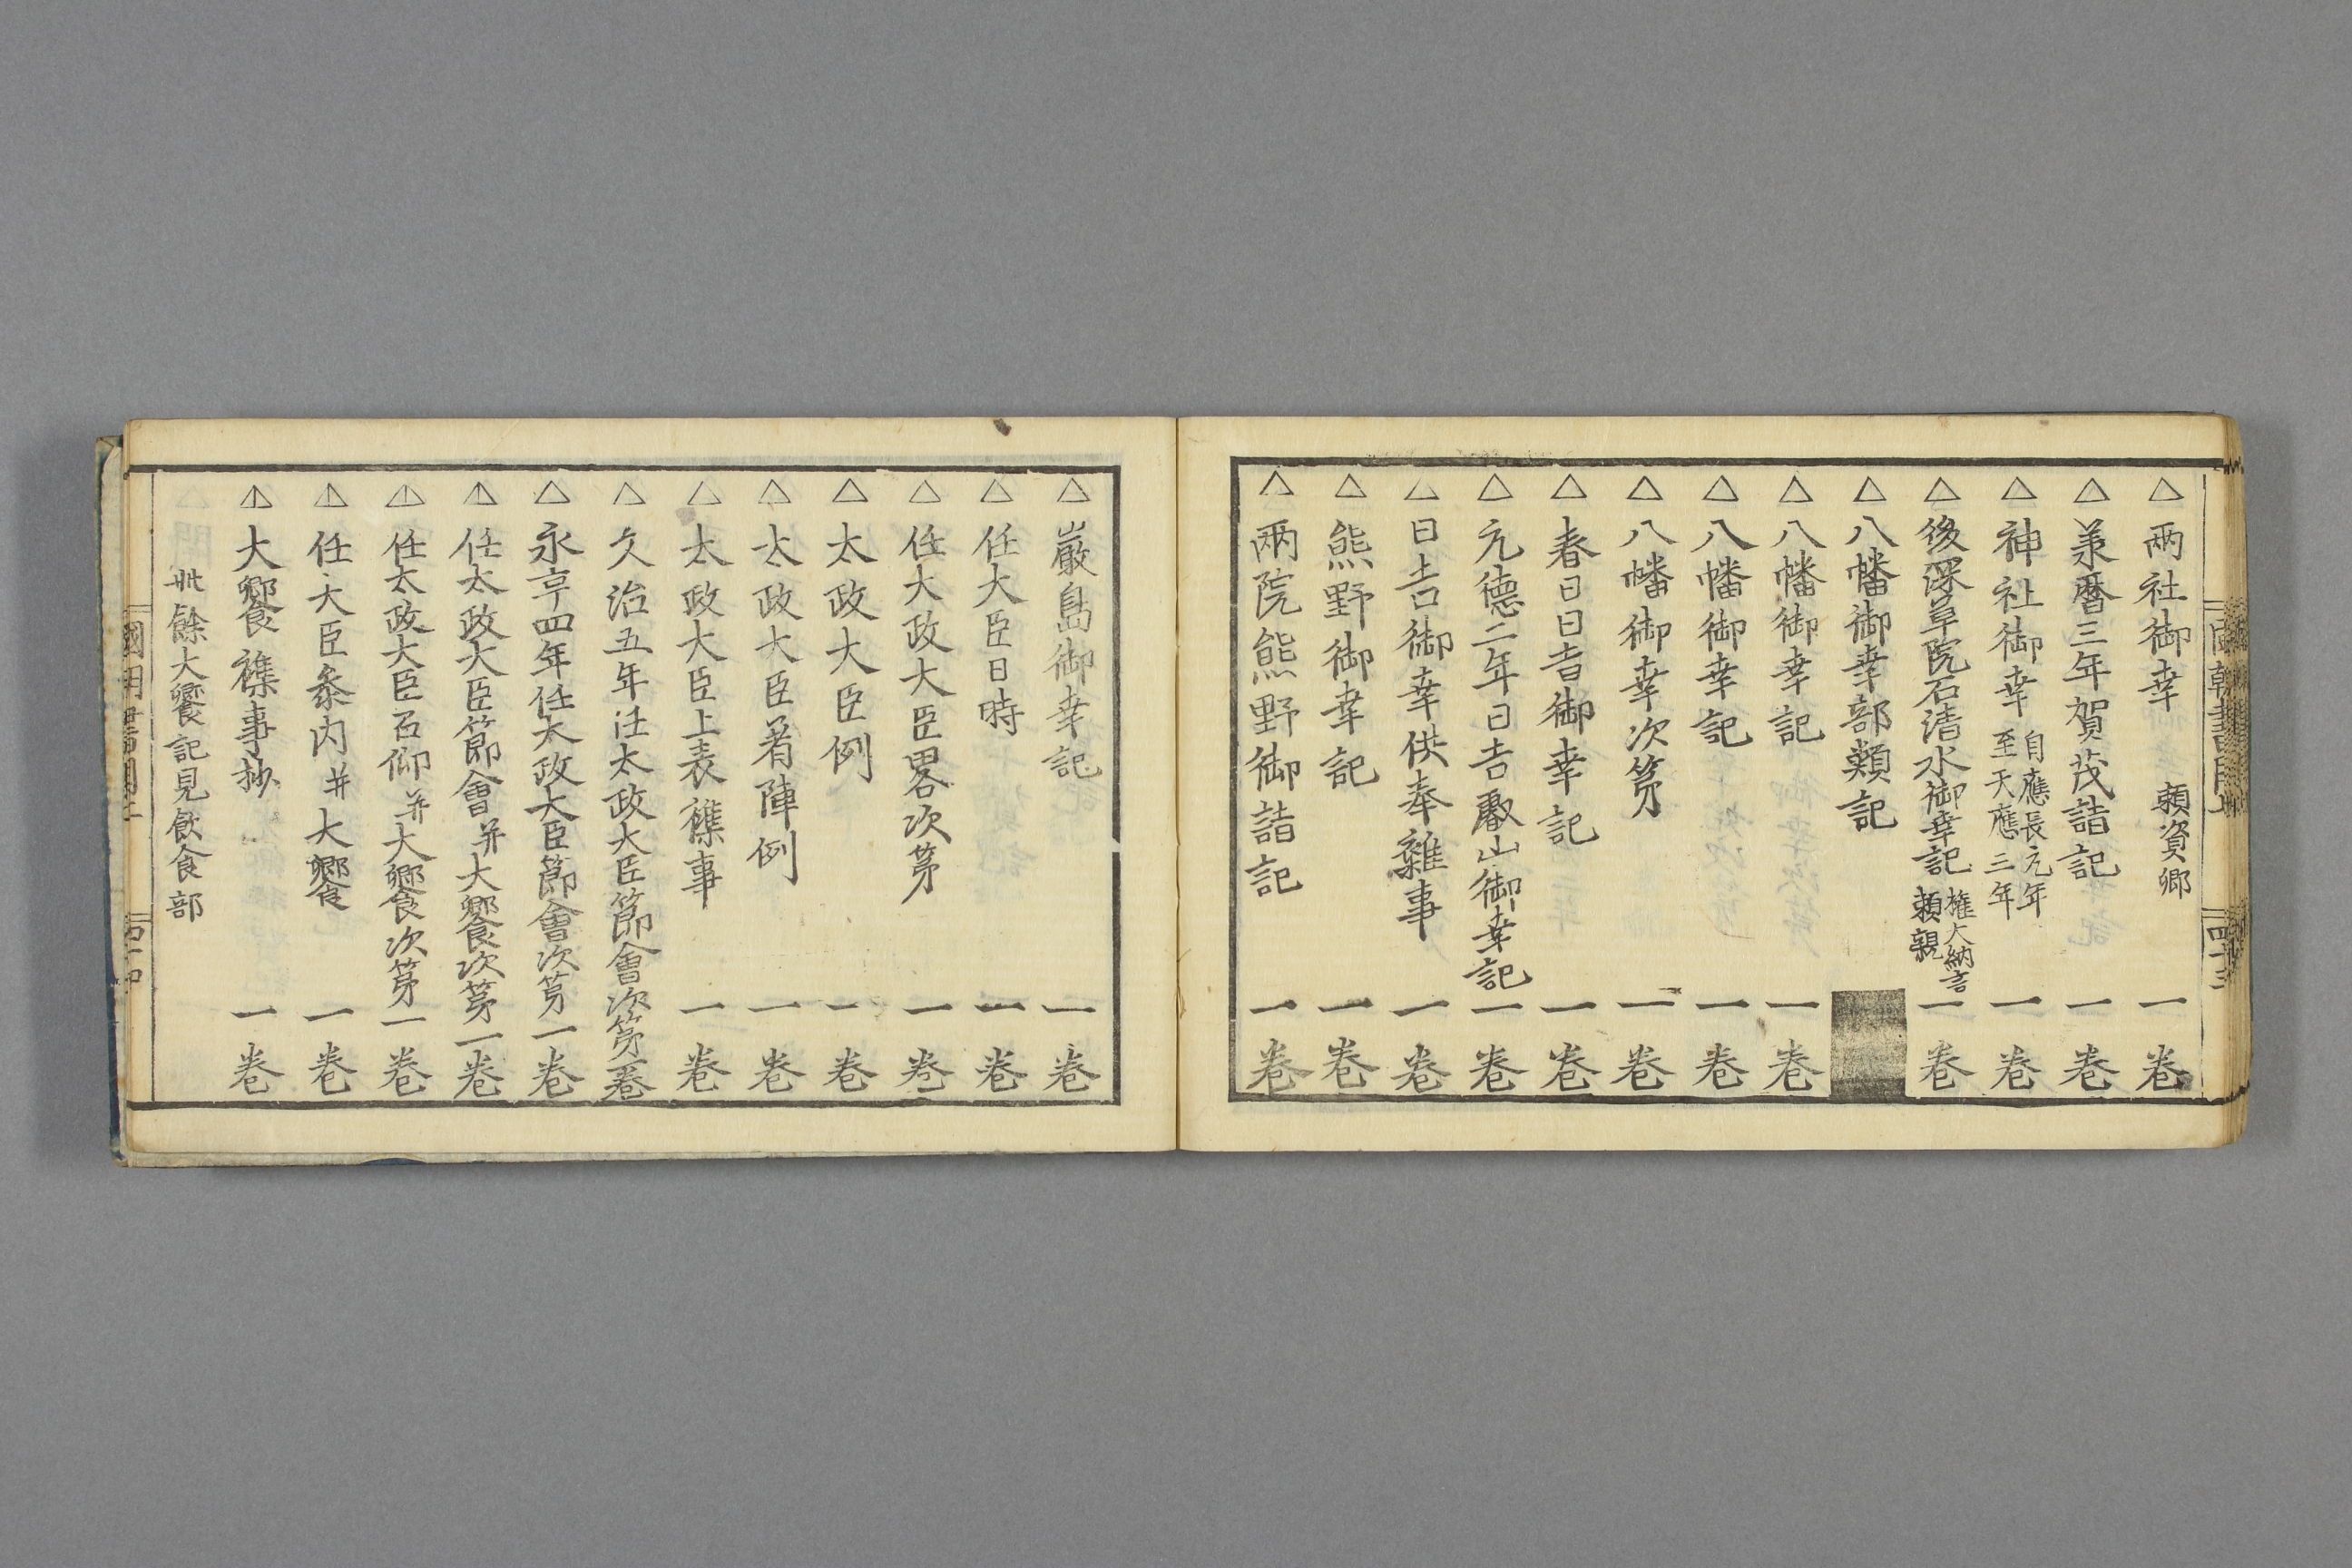 △兩社御幸 頼資卿 一卷
△承暦三年賀茂詣記 一卷
△神社御幸 自應長元年至天應三年 一卷
△後深草院石清水御幸記 権大納言頼親 一卷
△八幡御幸部類記
△八幡御幸記 一卷
△八幡御幸記 一卷
△八幡御幸次第 一卷
△春日日吉御幸記 一卷
△元德二年日吉叡山御幸記 一卷
△日吉御幸供奉雜事 一卷
△熊野御幸記 一卷
△兩院熊野御詣記 一卷
△嚴島御幸記 一卷
△任大臣日時 一卷
△任大政大臣畧次第 一卷
△太政大臣例 一卷
△太政大臣着陣例 一卷
△太政大臣上表襍事 一卷
△久治五年任太政大臣節會次第一卷
△永享四年任太政大臣節會次第一卷
△任太政大臣節會并大饗次第一卷
△任太政大臣召仰并大饗次第一卷
△任大臣叅内并大饗 一卷
△大饗襍事抄 一卷
此餘大饗記見飲食部